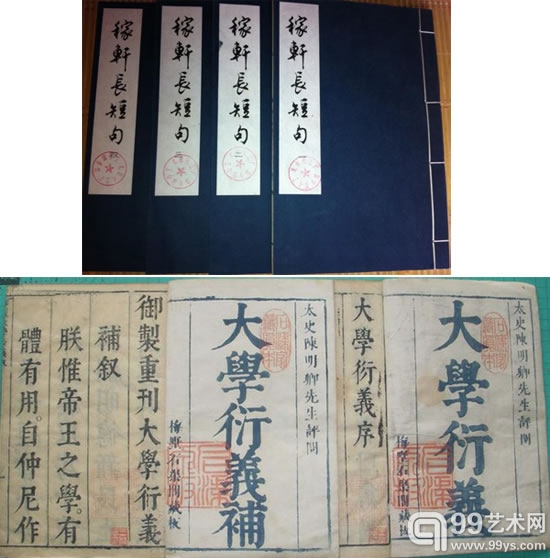 稼軒長短句 一
稼軒長短句 二
稼軒長短句 三
稼軒長短句
太史陳明卿先生評閱
大學衍義
梅墅石渠閣藏板
大學衍義序
太史陳明卿先生評閱
大學衍義補
梅墅石渠閣藏板
御製重刊大學衍義
補叙
朕惟帝王之學。有
體有用。自仲尼作
99艺术网
www.99ys.com